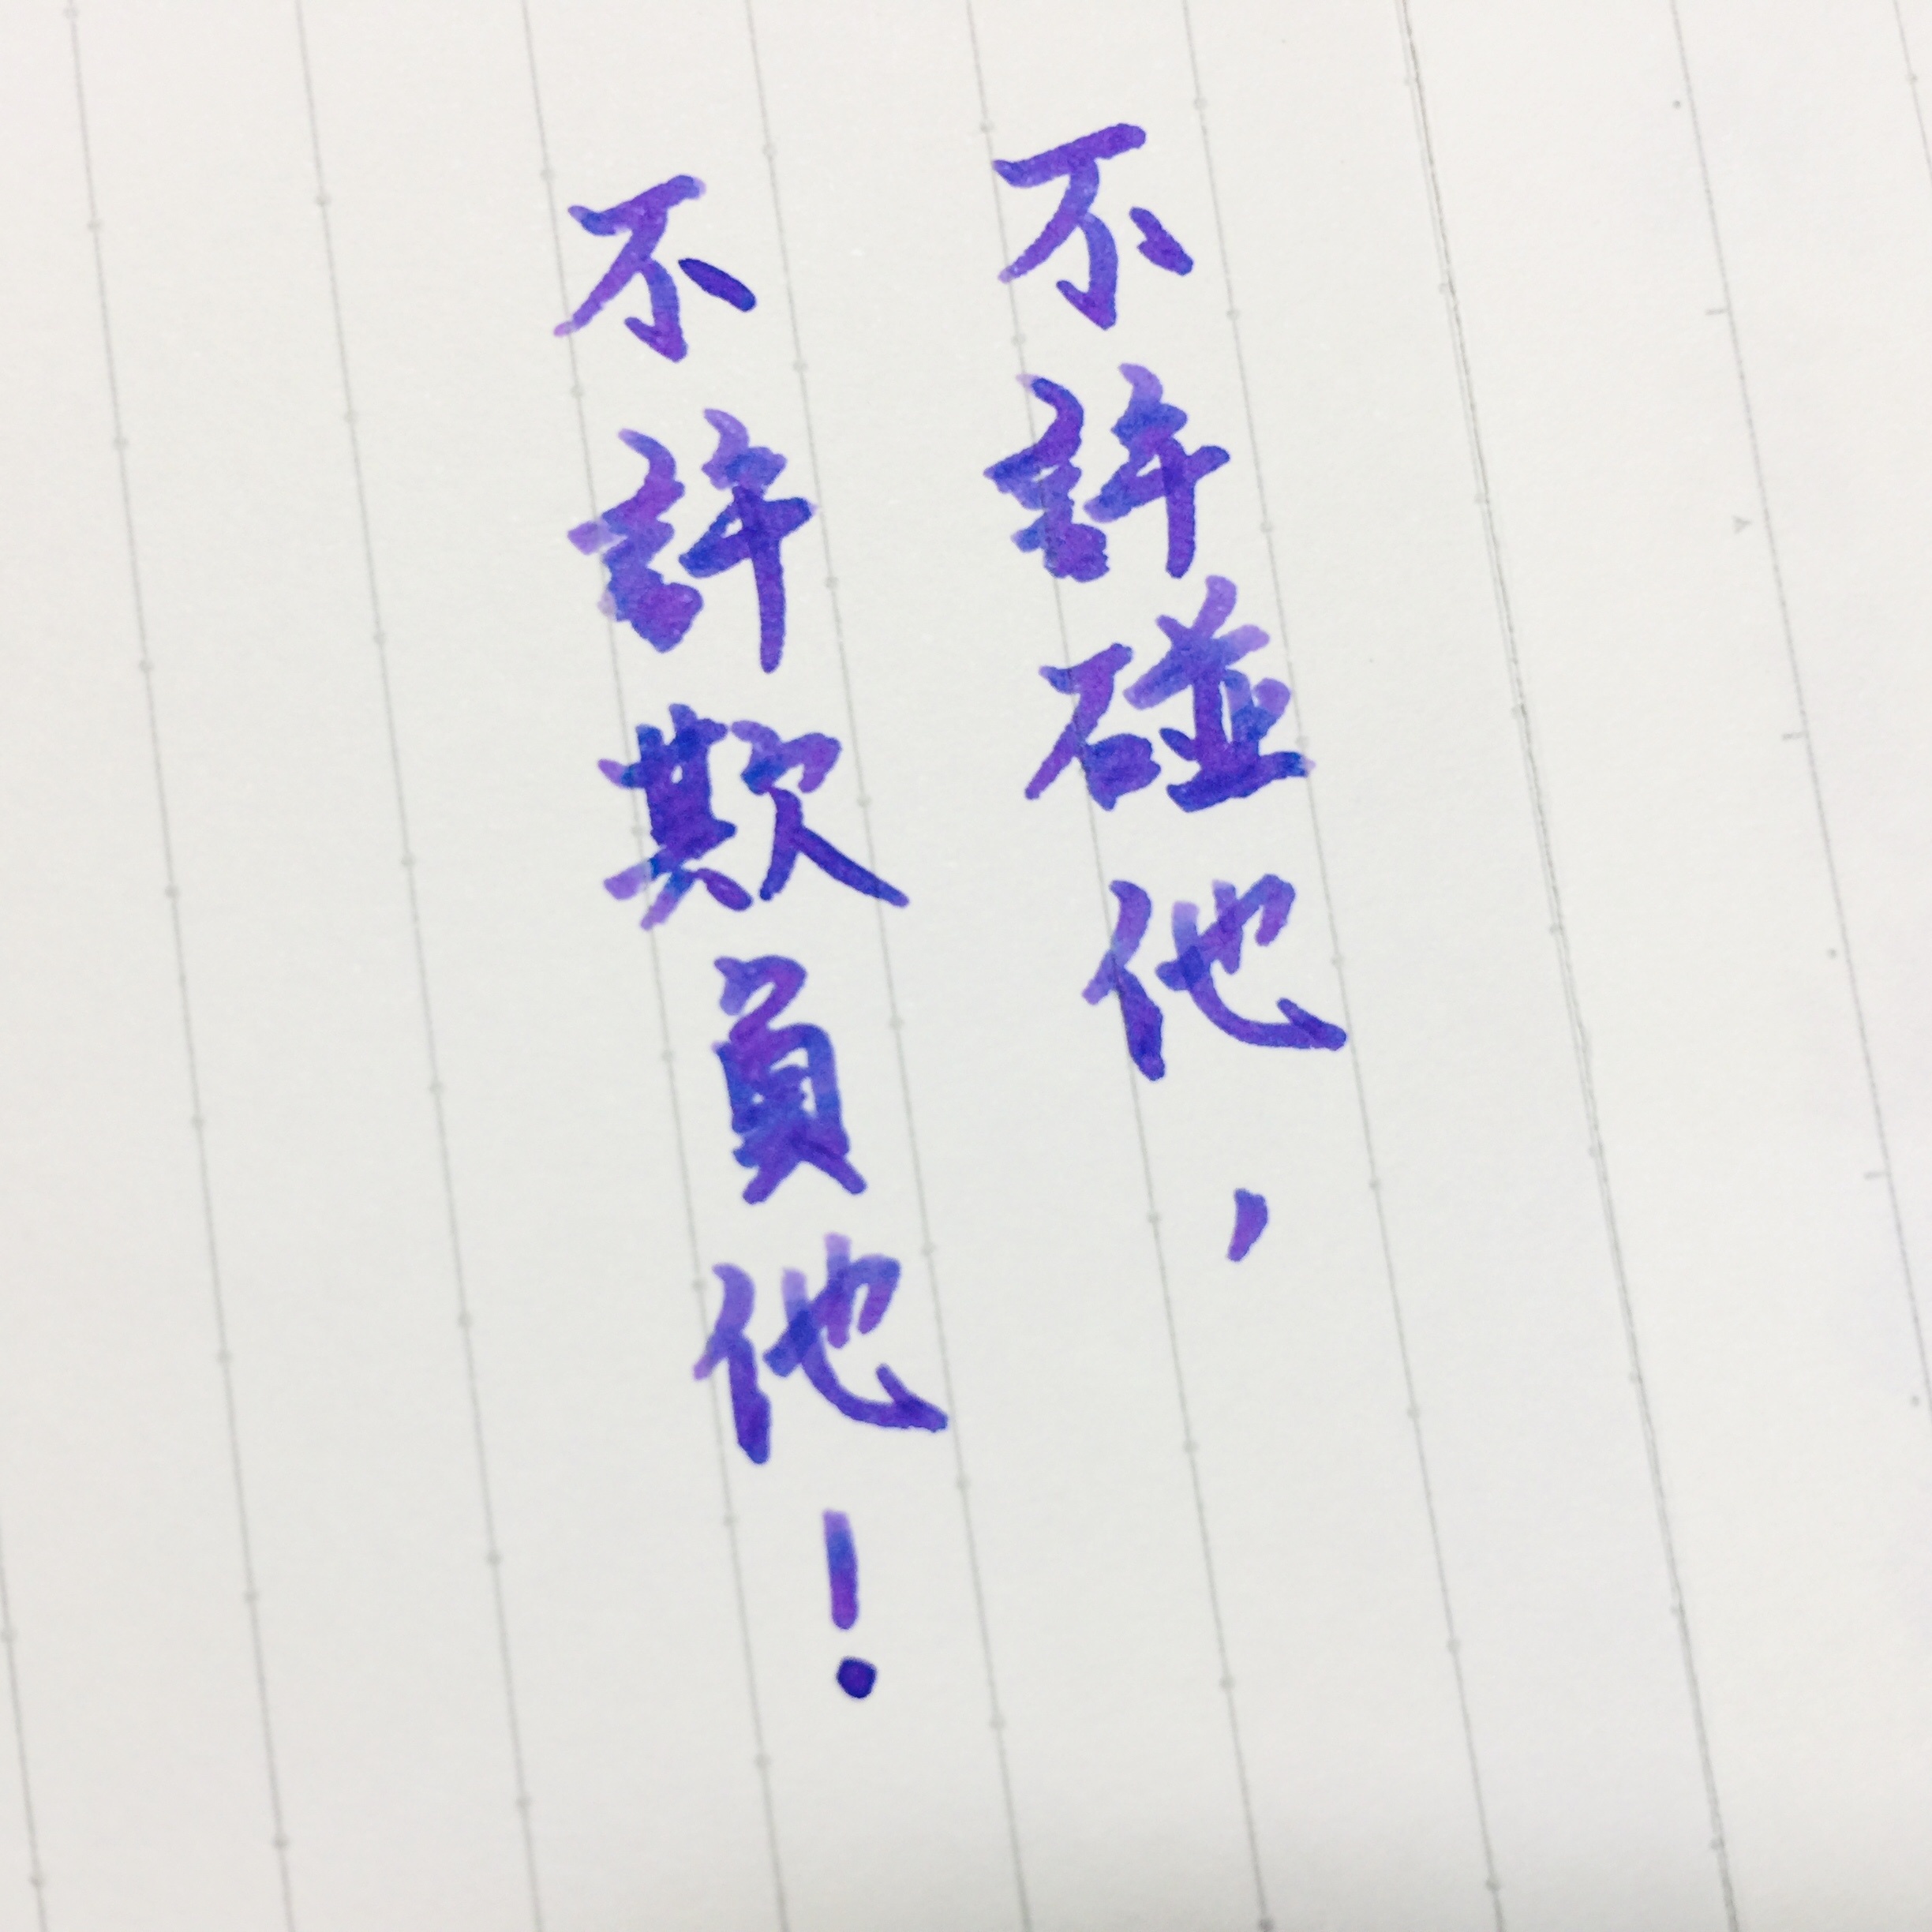 不許碰他，
不許欺負他！